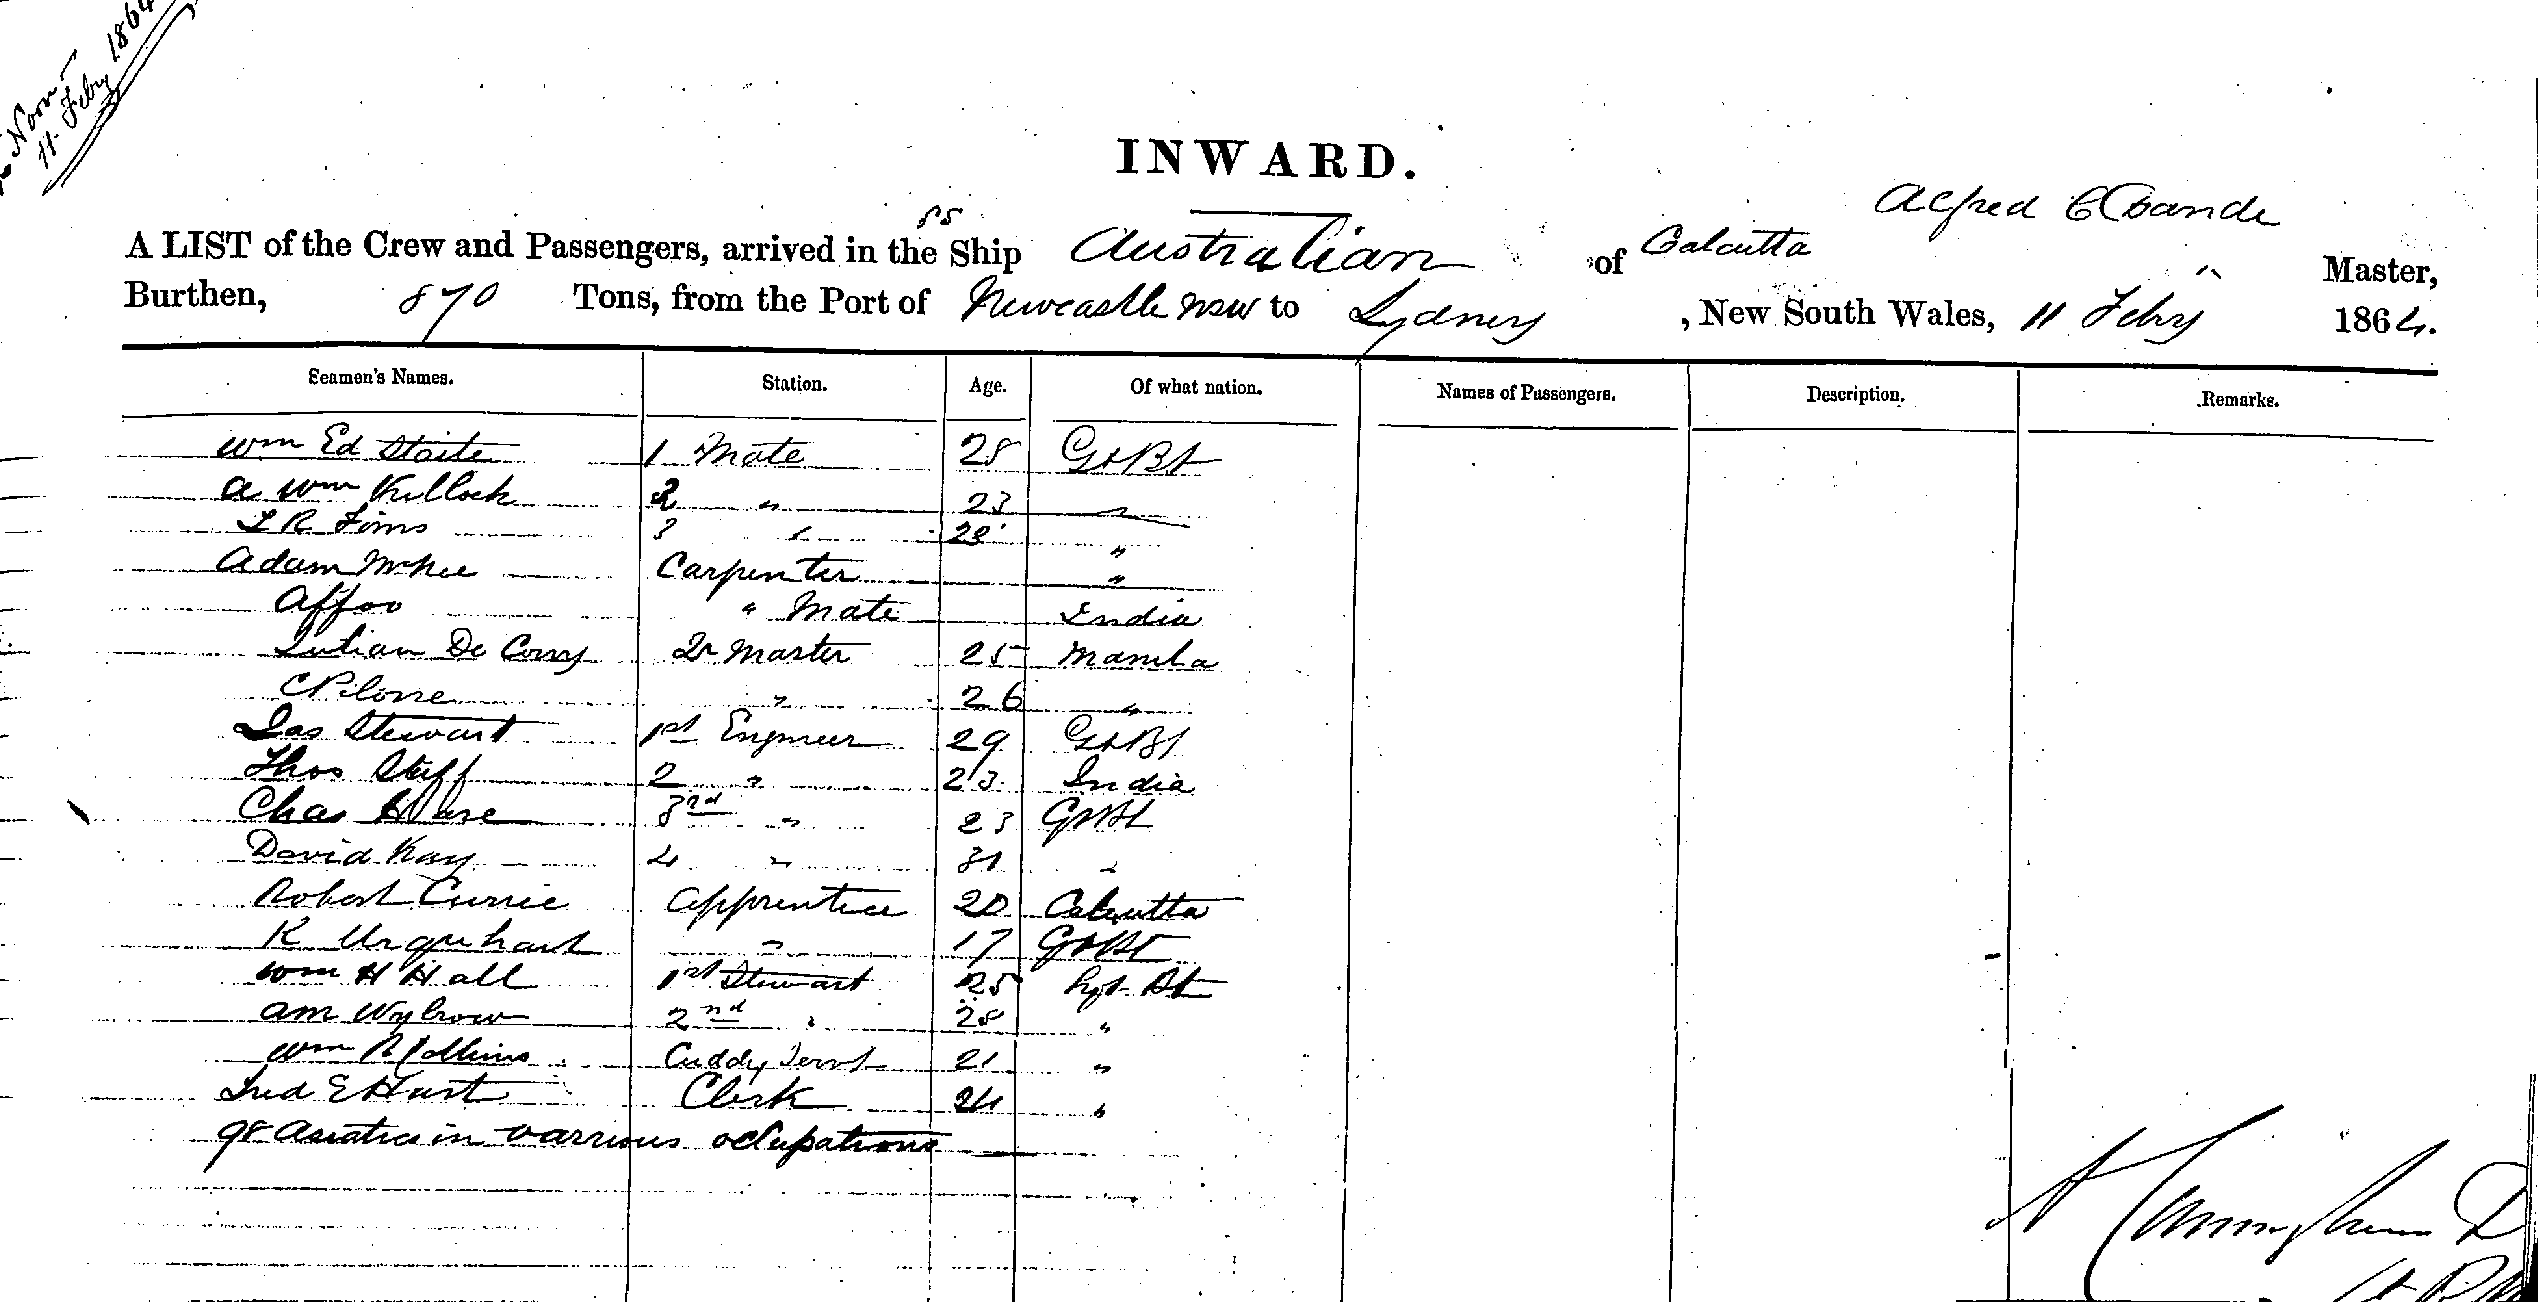 Noon
11 Feby 1864
INWARD.
Alfred
A LIST of the Crew and Passengers, arrived in the SS Ship Australian of Calcutta Master,
Burthen, 870 Tons, from the Port of Newcastle NSW to Sydney , New South Wales, 11 Feby 1864.
Seamen's Names. Station. Age. Of what nation. Names of Passengers. Description. Remarks.
Wm Ed Staite 1 Mate 28 Gt Bt
A Wm Kullock 2 " 23 "
3 " "
Adam McKee Carpenter "
Affoo " Mate India
De Cony Qr Master 25 Manila
" 26 "
Jas Stewart 1st Engineer 29 Gt Bt
Thos Steff 2 " 23 India
Chas Hare 3rd " 23 Gt Bt
David Kay 4 " 31 "
Robert Currie Apprentice 20 Calcutta
R Urquhart " 17 Gt Bt
Wm H Hall 1st Stewart 25 Gt Bt
Am Wybrow 2nd " 28 "
Wm R Collins Cuddy Servt 21 "
Fred E Hart Clerk 24 "
98 Asiatics in varrious ocupations
Cunningham